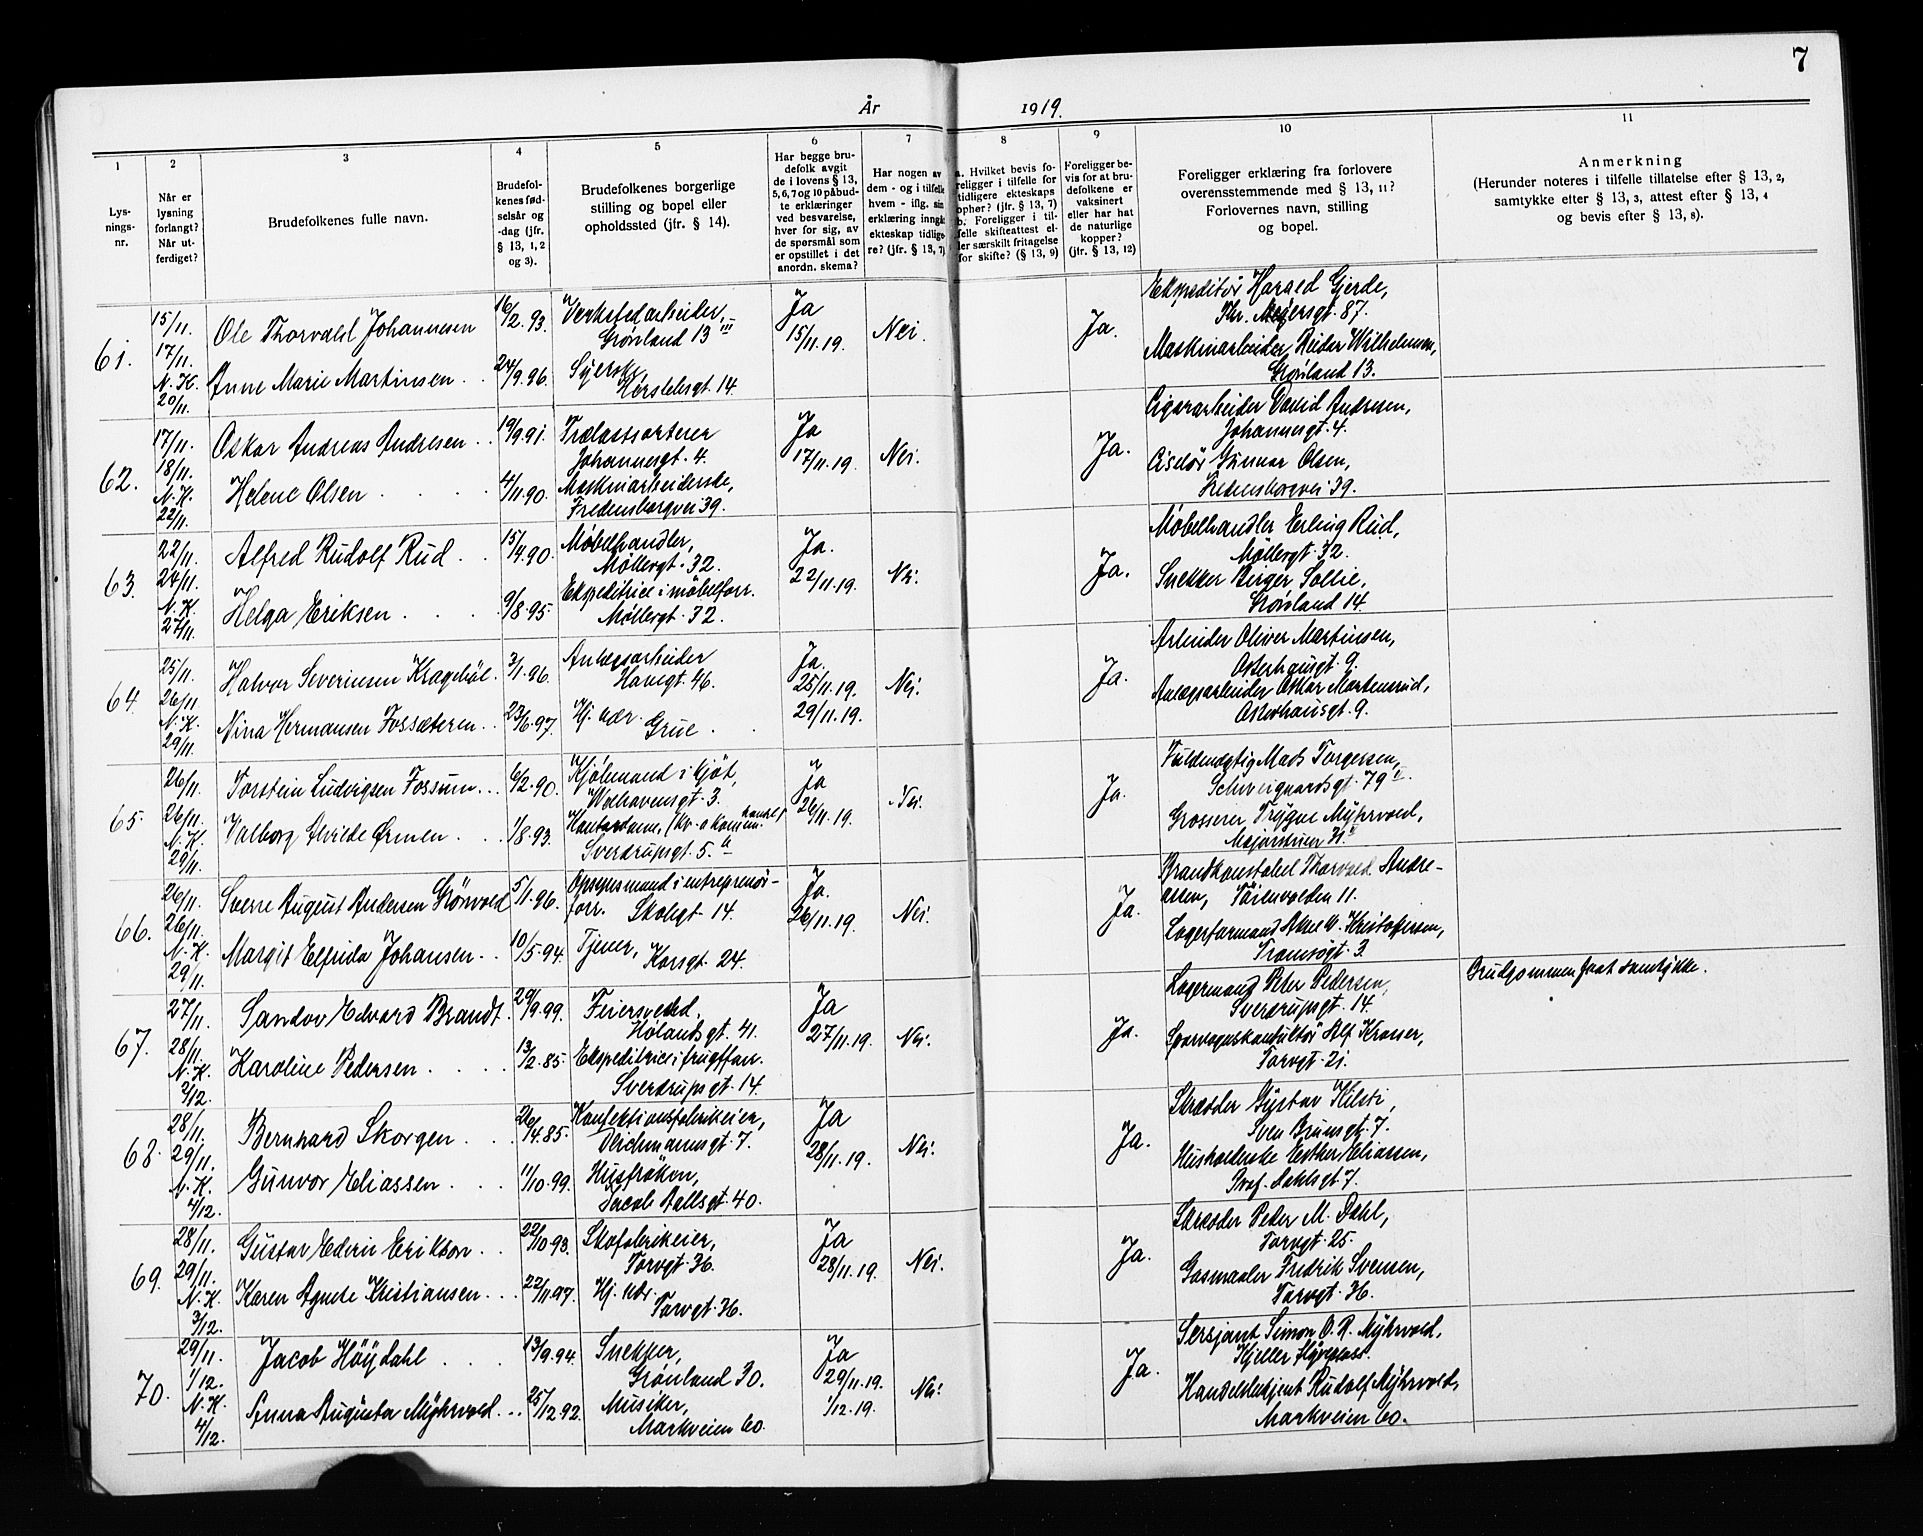 7
År 1919.
1 2 3 4 5 6 7 8 9 10 11
Lys-
nings-
nr.
Når er
lysning
forlangt?
Når ut-
ferdiget?
Brudefolkenes fulle navn.
Brudefol-
kenes fød-
selsår og
-dag (jfr.
§ 13, 1, 2
og 3).
Brudefolkenes borgerlige
stilling og bopel eller
opholdssted (jfr. § 14).
Har begge bru-
defolk avgit
de i lovens § 13,
5, 6, 7 og 10 påbud-
te erklæringer
ved besvarelse,
hver for sig, av
de spørsmål som
er opstillet i det
anordn. skema?
Har nogen av
dem - og i tilfelle
hvem - iflg. sin
erklæring inngått
ekteskap tidlige-
re? (jfr. § 13, 7)
a. Hvilket bevis fo-
religger i tilfelle for
tidligere ekteskaps
ophør? (jfr. § 13, 7)
b. Foreligger i til-
felle skifteattest el-
ler særskilt fritagelse
for skifte? (§ 13, 9)
Foreligger be-
vis for at bru-
defolkene er
vaksinert
eller har hat
de naturlige
kopper?
(jfr. § 13, 12)
Foreligger erklæring fra forlovere
overensstemmende med § 13, 11?
Forlovernes navn, stilling
og bopel.
Anmerkning
(Herunder noteres i tilfelle tillatelse efter § 13, 2,
samtykke efter § 13, 3, attest efter § 13, 4
og bevis efter § 13, 8).
61.
15/11.
17/11.
N.K.
20/11.
Ole Thorvald Johannesen
Anne Marie Martinsen
16/2.93.
24/9.96.
Verkstedarbeider,
Grønland 13 III
Syerske,
Herslebsgt. 14
Ja
15/11.19.
Nei.
Ja.
Ekspeditør Harald Gjerde,
Thr. Meyersgt. 87.
Maskinarbeider Reidar Wilhelmsen,
Grønland 13.
62.
17/11.
18/11.
N.K.
22/11.
Oskar Andreas Andresen
Helene Olsen
19/9.91.
4/11.90.
Trælastsorterer
Johannesgt. 4.
Maskinarbeiderske,
Fredensborgvei 39.
Ja
17/11.19.
Nei.
Ja.
Cigararbeider David Andresen,
Johannesgt. 4.
Ciselør Gunnar Olsen,
Fredensborgvei 39.
63.
22/11.
24/11.
N.K.
27/11.
Alfred Rudolf Rud
Helga Eriksen
15/4.90.
9/8.95.
Møbelhandler,
Møllergt. 32.
Ekspeditrice i møbelforr.
Møllergt. 32.
Ja.
22/11.19.
Nei.
Ja.
Møbelhandler Erling Rud,
Møllergt. 32.
Snekker Birger Sollie,
Grønland 14.
64.
25/11.
26/11.
N.K.
29/11.
Halvor Severinsen Kragebøl
Nina Hermansen Fossæteren
3/1.96.
23/6.97.
Anlægsarbeider
Havegt. 46.
Hj. vær.
Grue
Ja.
25/11.19.
29/11.19.
Nei.
Ja.
Arbeider Oliver Martinsen,
Osterhausgt. 9.
Anlægsarbeider Oskar Martensrud,
Osterhausgt. 9.
65.
26/11.
26/11.
N.K.
29/11.
Torstein Ludvigsen Fossum
Valborg Alvilde Ørmen
6/2.90.
1/8.93.
Kjøbmand i kjøt,
Welhavensgt. 3.
Sverdrupsgt. 5. a
Ja
26/11.19.
Nei.
Ja.
Fuldmægtig Mads Torgersen,
Schweigaardsgt. 79 I.
Grosserer Trygve Myhrvold,
66.
26/11.
26/11.
N.K.
29/11.
Sverre August Andersen Grönvold
Margit Elfrida Johansen
5/1.96.
10/5.94.
Opsynsmand i entreprenør-
forr. Skolegt. 14.
Tjener,
Korsgt. 24.
Ja.
26/11.19.
Nei.
Ja.
Brandkonstabel Thorvald Andre-
assen, Tøienvolden 11.
Lagerformand Aksel W. Kristoffersen,
Tromsøgt. 3.
67.
27/11.
28/11.
N.K.
2/12.
Sandov Edvard Brandt
Karoline Pedersen
29/9.99.
13/2.85.
Feiersvend,
Hølandsgt. 41.
Ekspeditrice i frugtforr.
Sverdrupsgt. 14.
Ja
27/11.19.
Nei.
Ja.
Lagermand Peter Pedersen,
Sverdrupsgt. 14.
Sporvognskonduktør Alf Krosser,
Torvgt. 21.
Brudgommen faat samtykke.
68.
28/11.
29/11.
N.K.
4/12.
Bernhard Skorgen
Gunvor Eliassen
26/4.85.
11/10.99.
Konfektionsfabrikeier,
Deichmannsgt. 7.
Husfrøken,
Jacob Aallsgt. 40.
Ja
28/11.19.
Nei.
Ja.
Skrædder Gustav Kilsti,
Sven Brunsgt. 7.
Husholderske Esther Eliassen,
Prof. Dahlsgt. 7.
69.
28/11.
29/11.
N.K.
3/12.
Gustav Edvin Erikson
Karen Agnete Kristiansen
22/10.93.
22/11.97.
Skofabrikeier,
Torvgt. 36.
Hj. vær.
Torvgt. 36.
Ja
28/11.19.
Nei.
Ja.
Skrædder Peder M. Dahl,
Torvgt. 25.
Gasmaaler Fredrik Svensen,
Torvgt. 36.
70.
29/11.
1/12.
N.K.
4/12.
Jacob Høydahl
Anna Augusta Myhrvold
13/9.94.
25/12.92.
Snekker,
Grønland 30.
Musiker,
Markveien 60.
Ja
29/11.19.
1/12.19.
Nei.
Ja.
Sersjant Simon O. R. Myhrvold,
Kjeller flyveplass.
Handelsbetjent Rudolf Myhrvold,
Markveien 60.